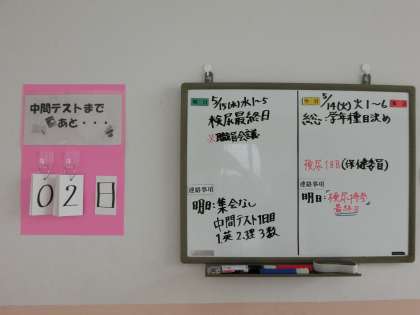 中間テストまで
あと・・・
02日
5/15(水)水1~5
検尿最終日
※職員会議
連絡事項
明日:集会なし
中間テスト1日目
1.英 2.理 3.数
5/14(火)火1~6
総:学年種目決め
検尿1日目(保健委員)
連絡事項
明日:検尿
最終日